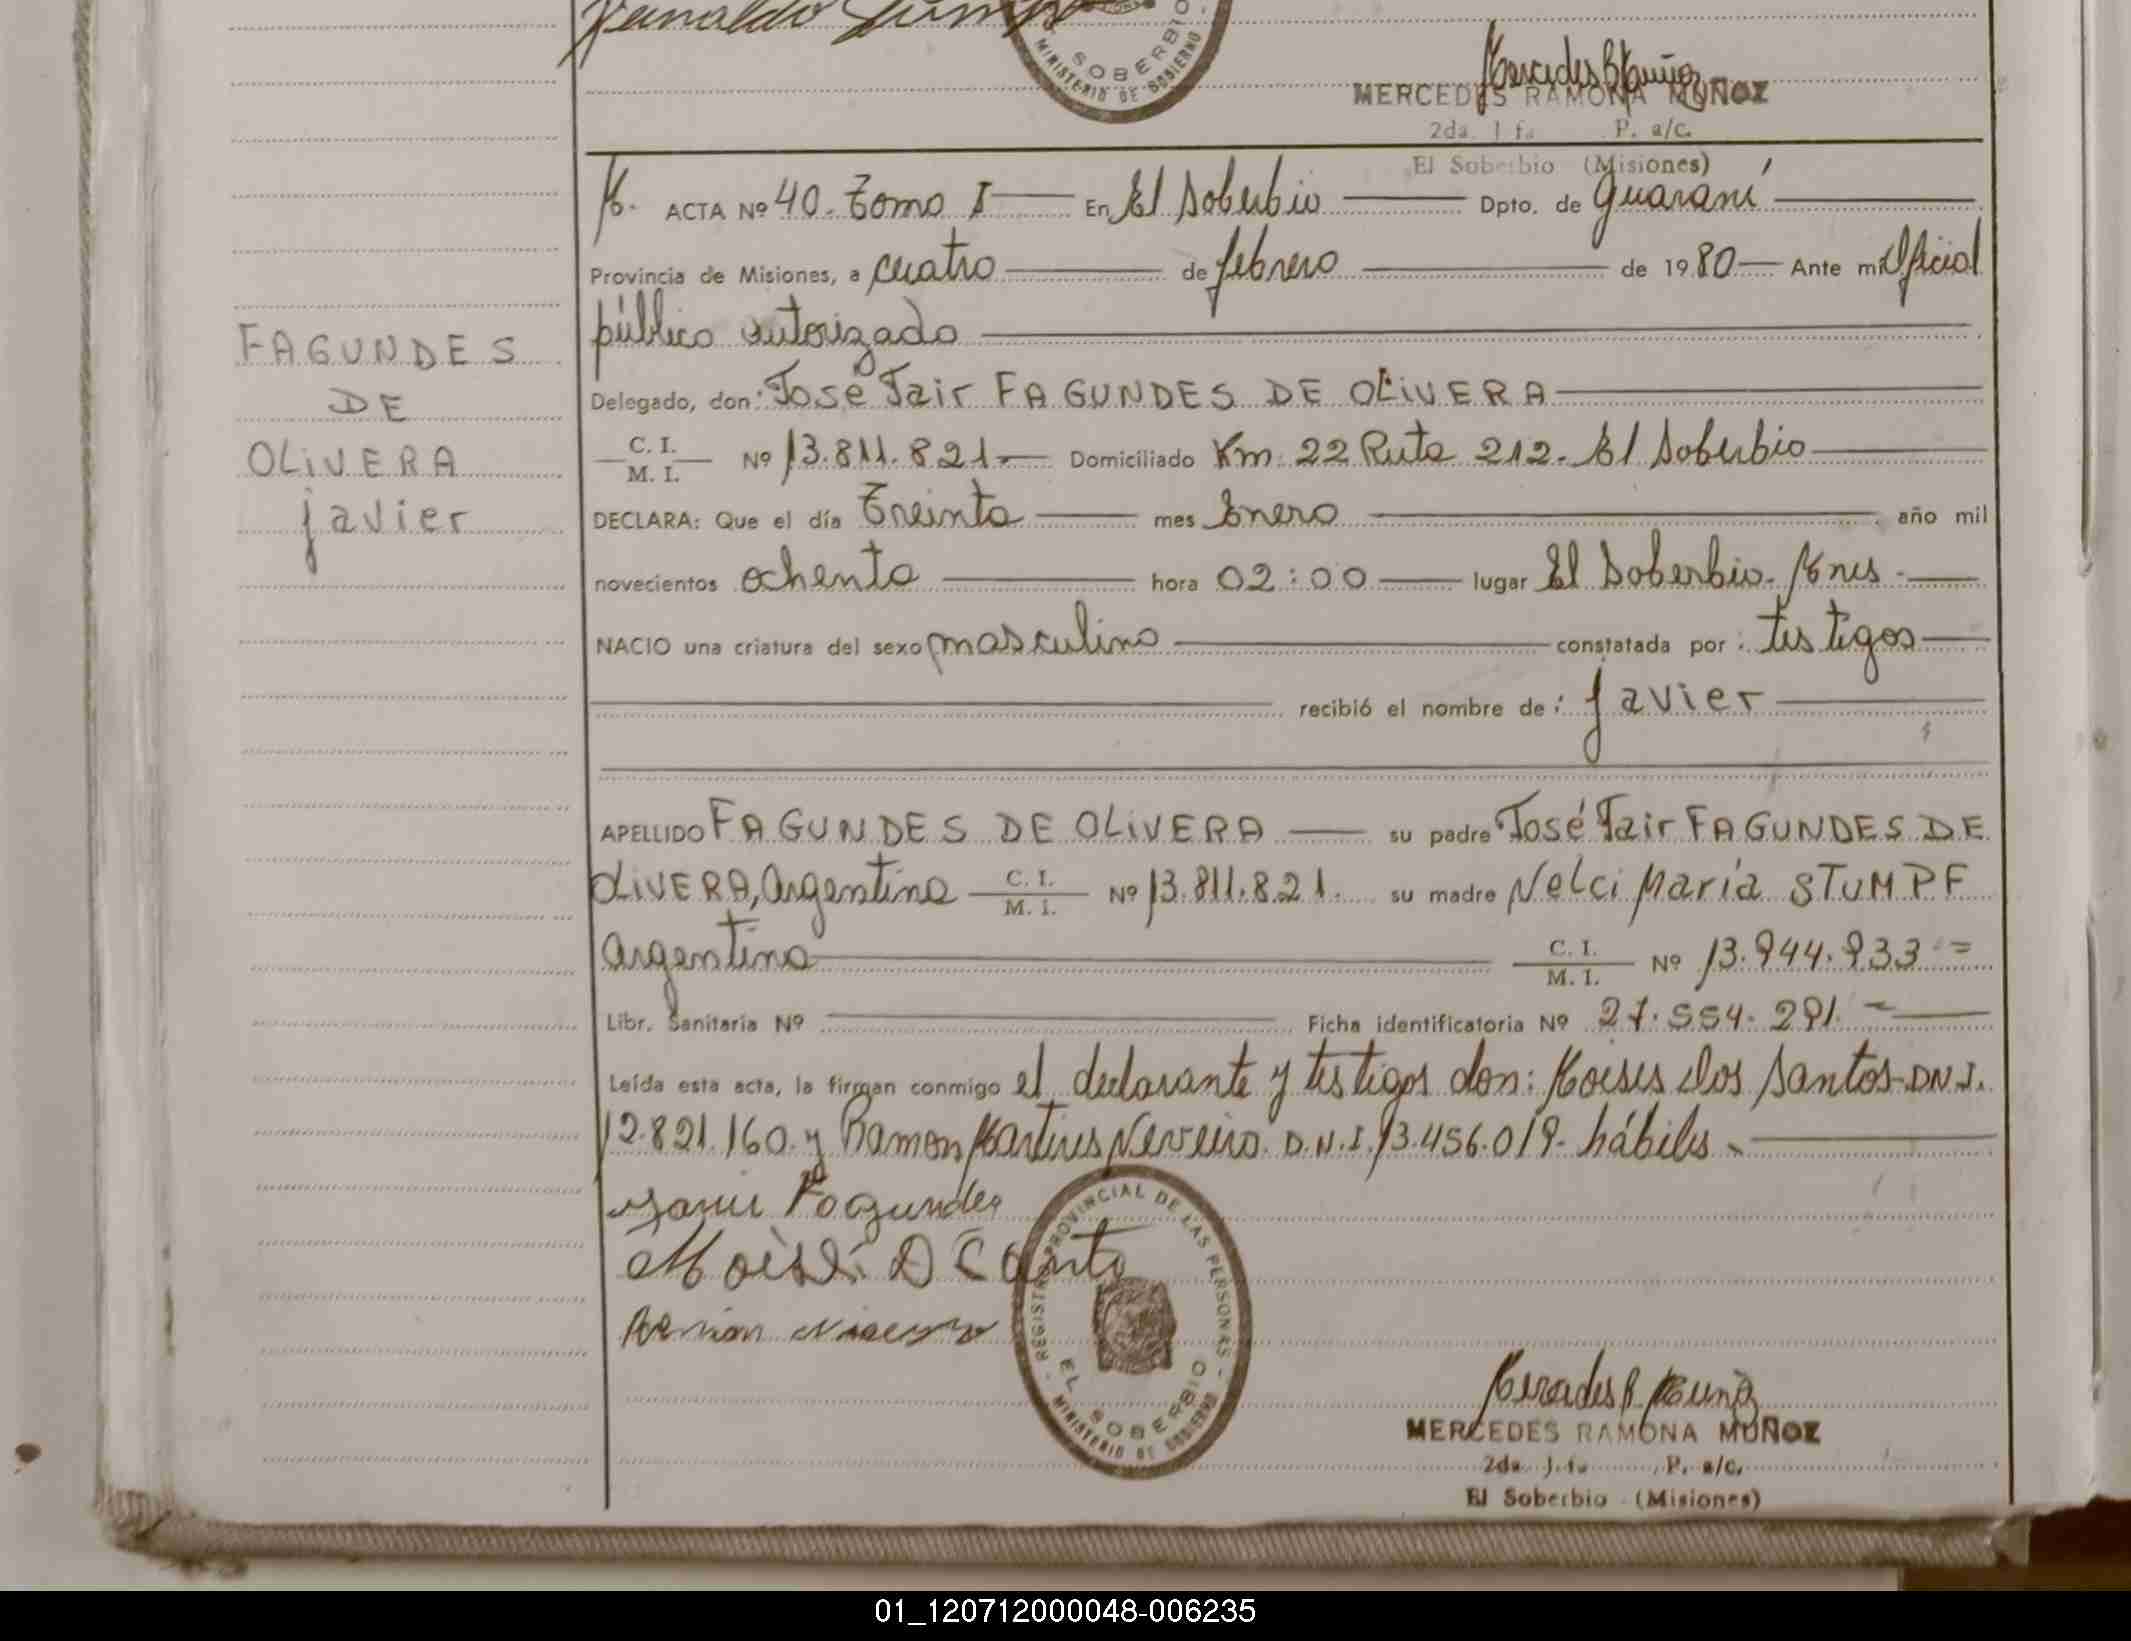 SOBERBIO
MINISTERIO DE GOBIERNO
Mercedes R Muñoz
MERCEDES RAMONA MUÑOZ
2da. J fa P. a/c.
El Soberbio (Misiones)
M. ACTA Nº 40. Tomo I En El Soberbio Dpto. de Guaraní
Provincia de Misiones, a cuatro de febrero de 1980 Ante mi Oficial
público autorizado
FAGUNDES
DE
OLIVERA
Javier
Delegado, don: José Jair FAGUNDES DE OLIVERA
C. I.
M. I. Nº 13.811.821 Domiciliado Km 22 Ruta 212. El Soberbio
DECLARA: Que el día Treinta mes Enero año mil
novecientos ochenta hora 02:00 lugar El Soberbio. Mnes.
NACIO una criatura del sexo masculino constatada por: testigos
recibió el nombre de: Javier
APELLIDO FAGUNDES DE OLIVERA su padre José Jair FAGUNDES DE
OLIVERA, Argentino C. I. M. I. Nº 13.811.821. su madre Nelci María STUMPF
Argentina C. I. M. I. Nº 13.944.933
Libr. Sanitaria Nº Ficha identificatoria Nº 27.554.291.
Leída esta acta, la firman conmigo el declarante y testigos don: Moises dos Santos D.N.I.
12.821.160. y Ramon Martires Neveiro. D.N.I. 13.456.019. hábiles
Fagundes
REGISTRO PROVINCIAL DE LAS PERSONAS
EL SOBERBIO
MINISTERIO DE GOBIERNO
Mercedes R. Muñoz
MERCEDES RAMONA MUÑOZ
2da. J. fa P. a/c.
El Soberbio (Misiones)
01_120712000048-006235